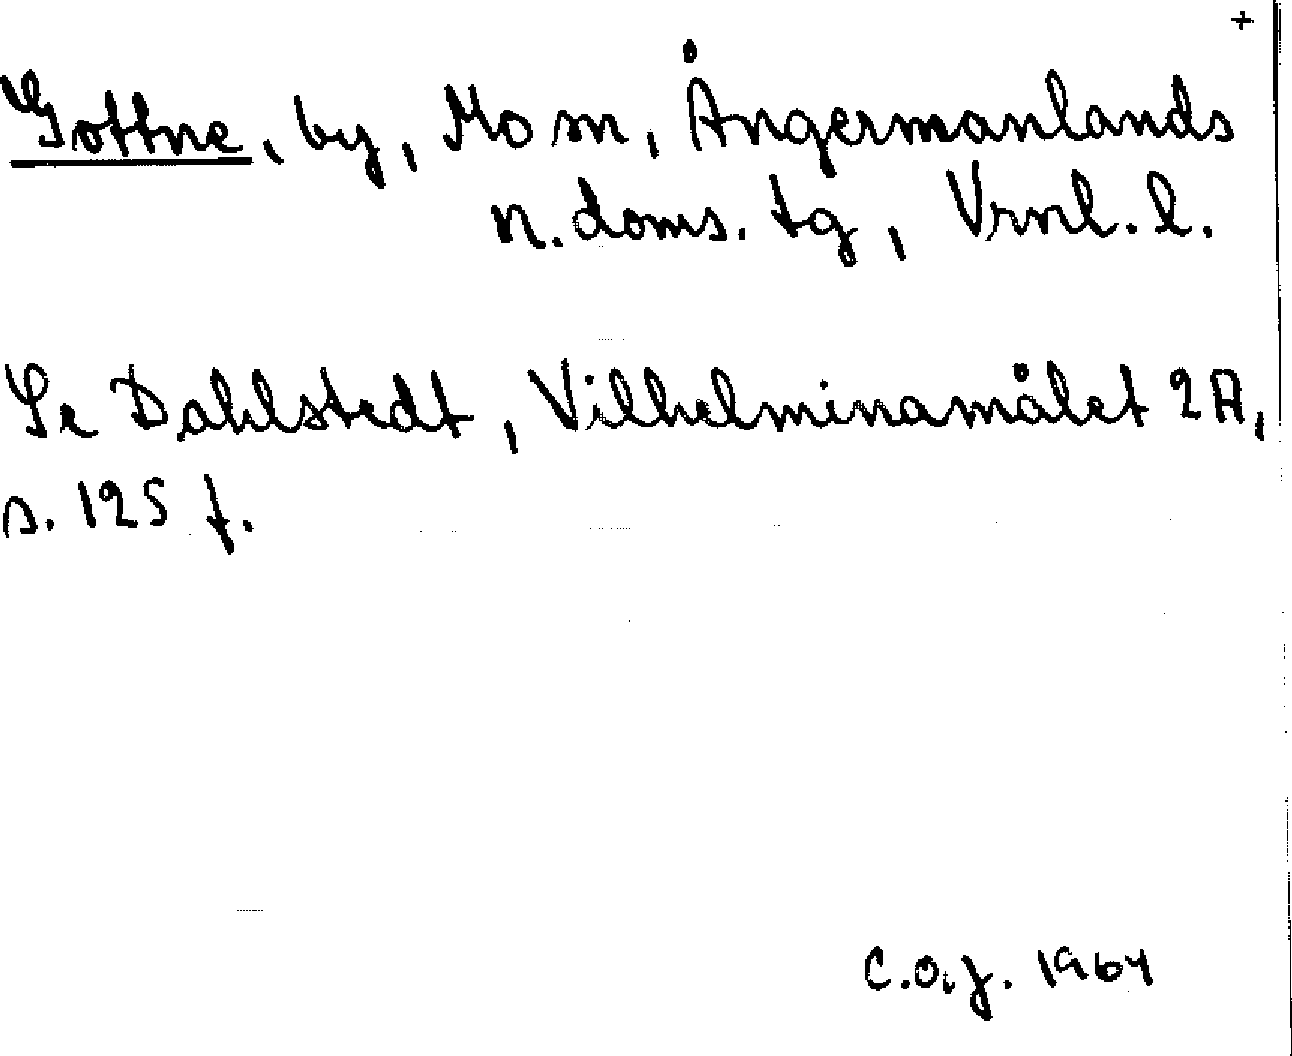 +
Gottne, by, Mo sn, Ångermanlands
n. doms. tg, Vrnl. l.
Se Dahlstedt, Vilhelminamålet 2A,
s. 125 f.
C.O.J. 1964